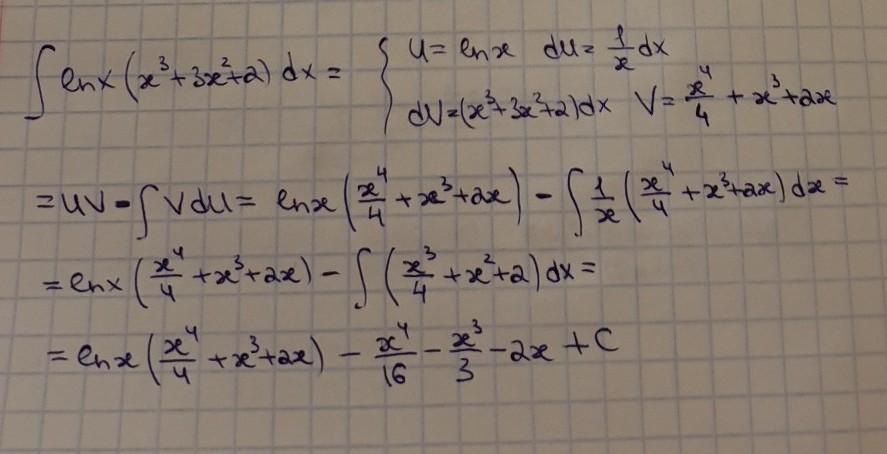 ∫ ln x (x³+3x²+2) dx = { u = ln x  du = 1/x dx
dV=(x³+3x²+2)dx  V= x⁴/4 + x³+2x
= uV - ∫ V du = ln x (x⁴/4 + x³+2x) - ∫ 1/x (x⁴/4 + x³+2x) dx =
= ln x (x⁴/4 + x³+2x) - ∫ (x³/4 + x²+2) dx =
= ln x (x⁴/4 + x³+2x) - x⁴/16 - x³/3 - 2x + C